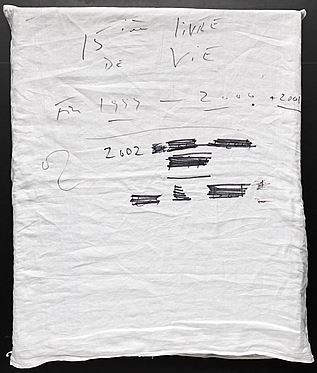 15 ième LIVRE
DE VIE
Fin 1999 — 2000 + 2001
2002